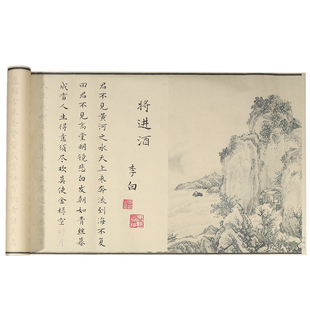 将进酒
李白
君不见黄河之水天上来奔流到海不复
回君不见高堂明镜悲白发朝如青丝暮
成雪人生得意须尽欢莫使金樽空